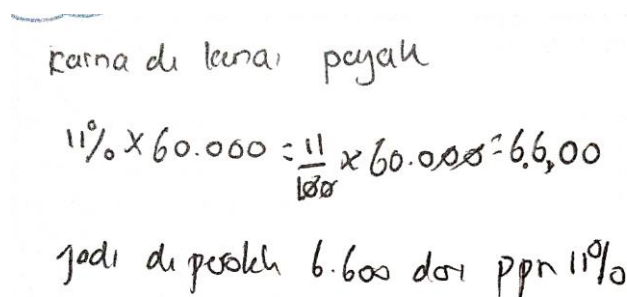 karna di kenai payah
11% × 60.000 = 11/100 × 60.000 = 6.6,00
jadi di peroleh 6.600 dari ppn 11%